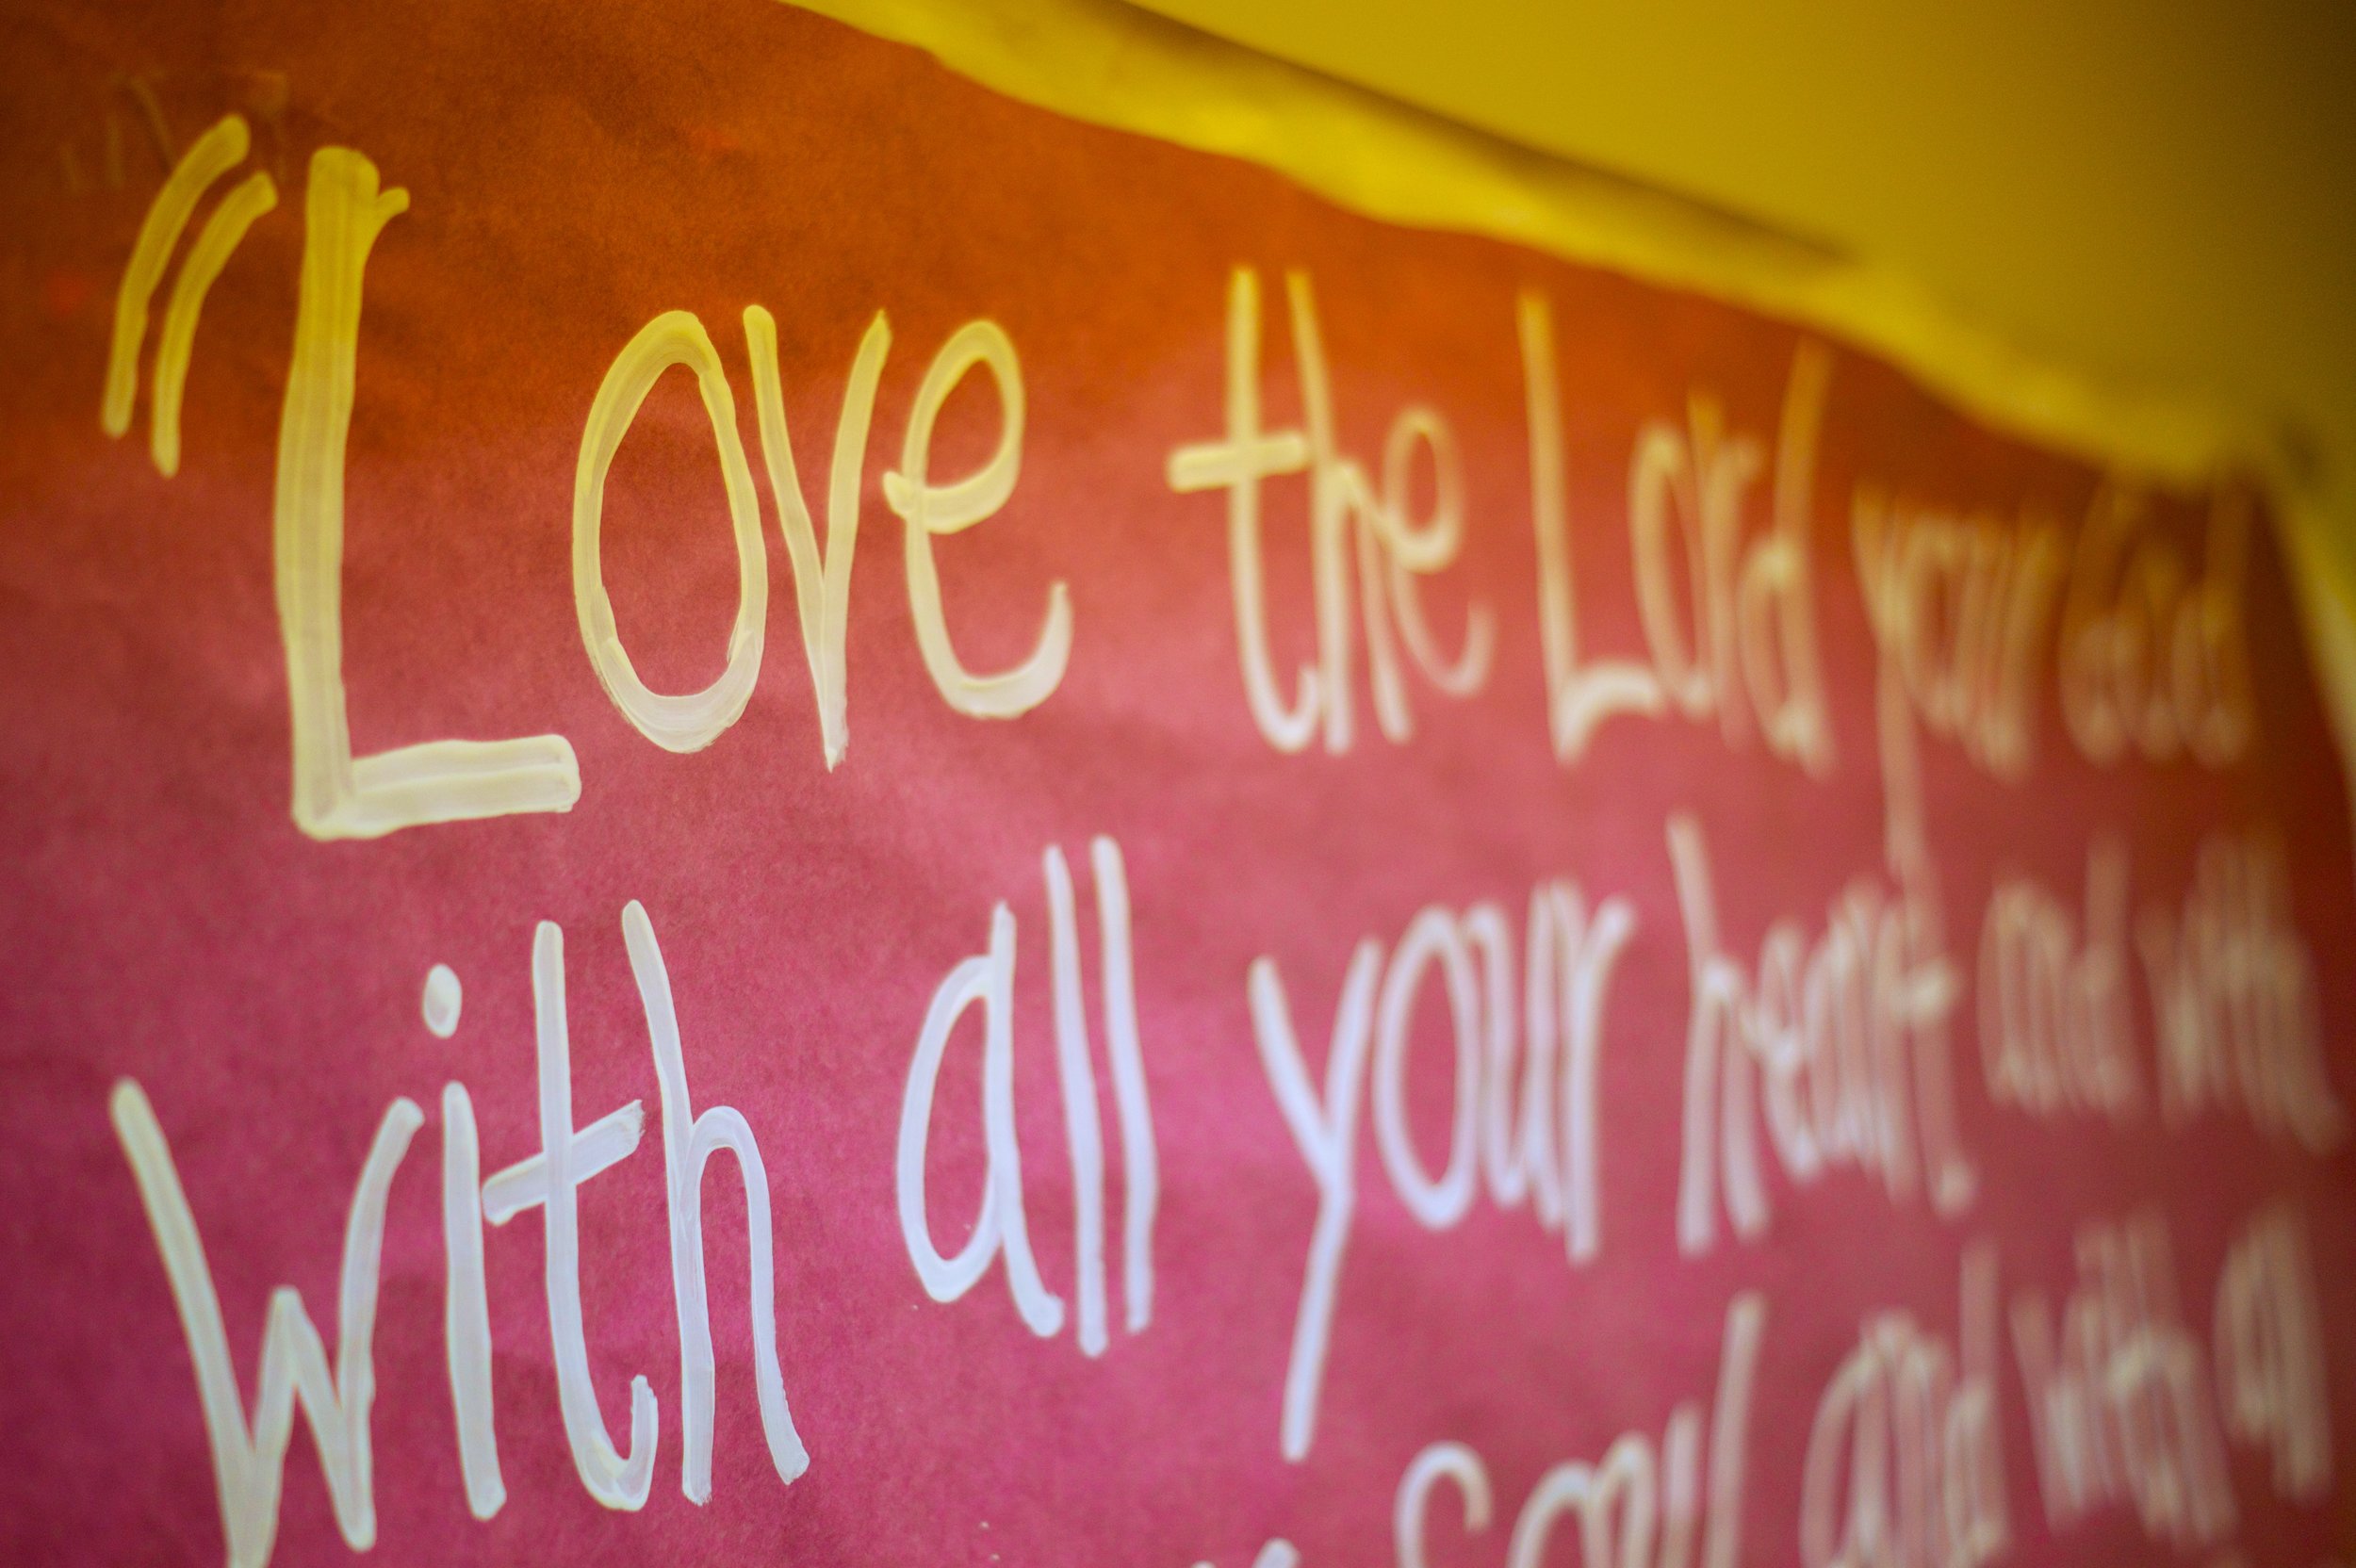 "Love the Lord your God
with all your heart and with
soul and with all